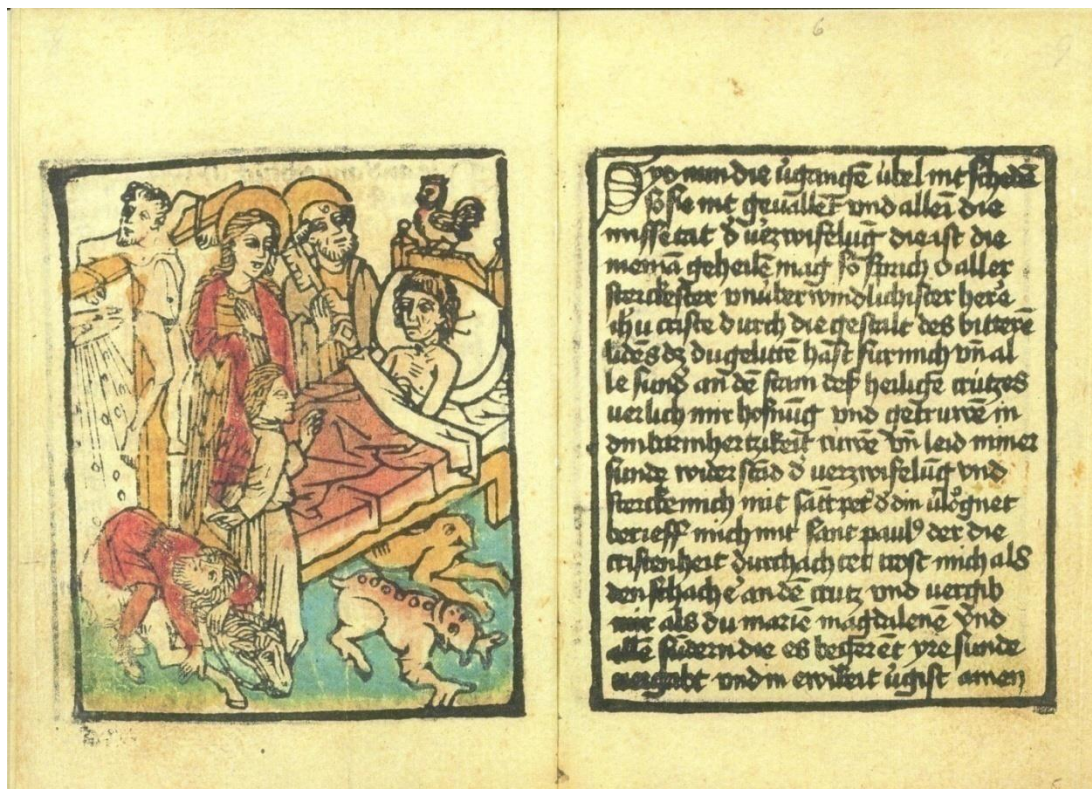 6
Syd nun die ùgangēē übel nit schedē
so sie nit geuallēt vnd allei die
missetat d̄ uerzwifelūg die ist die
niemā geheilē mag so sprich o aller
sterckester vnüberwindlichister here
ihū criste durch die gestalt des bitterē
lidēs dz du gelittē hast fur mich vn̄ al
le sund̄ an dē stam des heiligē crützes
uerlich mir hofnūg vnd getruwē in
din barmhertzikeit ruwē vn̄ leid miner
sunde widerstād d̄ uerzwifelūg vnd
stercke mich mit sāct pet̄ d̄ din ùlo͑gnet
berieff mich mit sant paul⁹ der die
cristenheit durchachtet trost mich als
den schachē an dē crutz vnd uergib
mir als du mariē magdalenē vnd
allē sūdern die es besserēt yre sunde
uergabt vnd in ewikeit ùgist amen